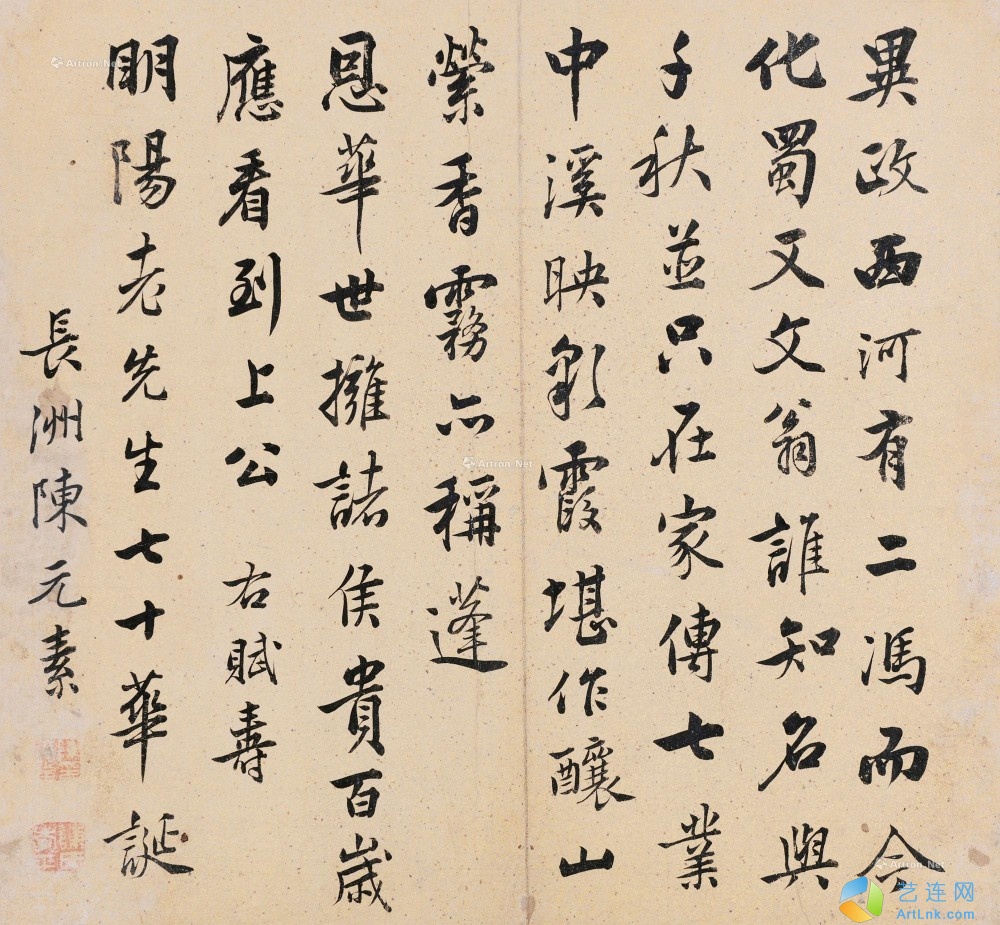 異政西河有二馮而今
化蜀又文翁誰知名與
千秋並只在家傳七業
中溪映彩霞堪作釀山
縈香霧亦稱蓬
恩華世擁諸侯貴百歲
應看到上公 右賦壽
明陽老先生七十華誕
長洲陳元素
Artron.Net
Artron.Net
Artron.Net
艺连网
ArtLnk.com